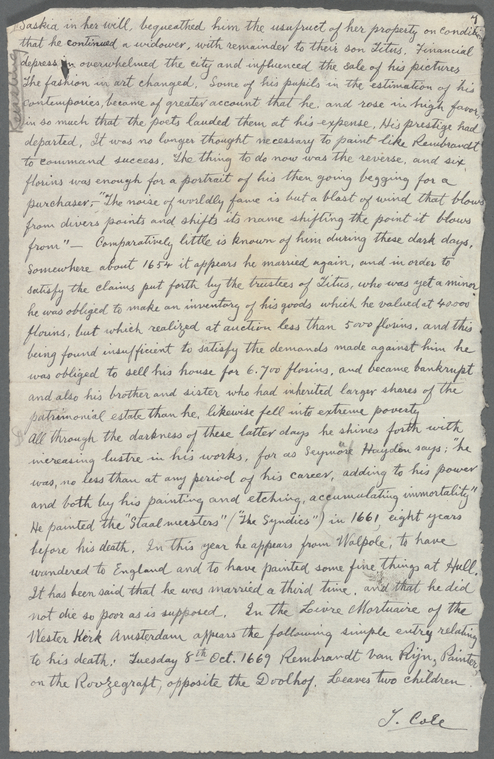 4
Saskia in her will, bequeathed him the usufruct of her property on condition
that he continued a widower, with remainder to their son Titus. Financial
depression overwhelmed the city and influenced the sale of his pictures
The fashion in art changed. Some of his pupils in the estimation of his
contempories, became of greater account that he, and rose in high favor,
in so much that the poets lauded them at his expense. His prestige had
departed. It was no longer thought necessary to paint like Rembrandt
to command success. The thing to do now was the reverse, and six
florins was enough for a portrait of his then going begging for a
purchaser,— "The noise of worldly fame is but a blast of wind that blows
from divers points and shifts its name shifting the point it blows
from" — Comparatively little is known of him during these dark days.
Somewhere about 1654 it appears he married again, and in order to
satisfy the claims put forth by the trustees of Titus, who was yet a minor
he was obliged to make an inventory of his goods which he valued at 40000
florins, but which realized at auction less than 5000 florins, and this
being found insufficient to satisfy the demands made against him he
was obliged to sell his house for 6.700 florins, and became bankrupt
and also his brother and sister who had inherited larger shares of the
patrimonial estate than he, likewise fell into extreme poverty
All through the darkness of these latter days he shines forth with
increasing lustre in his works, for as Seymore Hayden says: "he
was, no less than at any period of his career, adding to his power
and both by his painting and etching, accumulating immortality"
He painted the "Staalmeesters" ("The Syndics") in 1661 eight years
before his death. In this year he appears from Walpole, to have
wandered to England and to have painted some fine things at Hull.
It has been said that he was married a third time, and that he did
not die so poor as is supposed. In the Livre Mortuaire of the
Wester Kerk Amsterdam appears the following simple entry relating
to his death: Tuesday 8th Oct. 1669 Rembrandt van Rijn, Painter
on the Roozegraft, opposite the Doolhof. Leaves two children
T. Cole